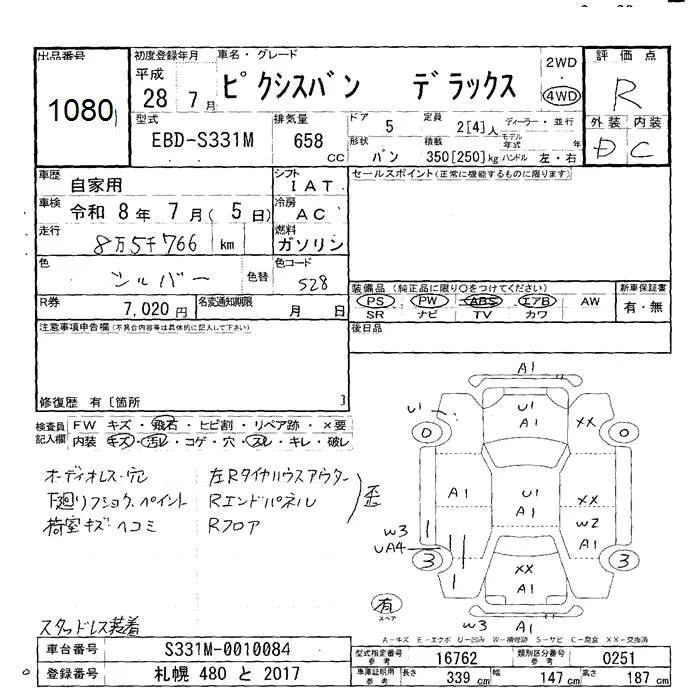 出品番号
1080
初度登録年月
平成
28年 7月
車名・グレード
ピクシスバン デラックス
2WD
・
4WD
評価点
R
外装 内装
D C
型式
EBD-S331M
排気量
658
CC
ドア
5
定員
2[4]人
ディーラー・並行
モデル年式 年
形状
バン
積載
350[250]kg
ハンドル 左・右
車歴
自家用
シフト
IAT
セールスポイント(正常に機能するものに限ります)
車検
令和 8年 7月( 5日)
冷房
AC
走行
8万5千766 km
燃料
ガソリン
色
シルバー
色替
色コード
S28
装備品 (純正品に限り○をつけてください)
PS PW ABS エアB AW
SR ナビ TV カワ
新車保証書
有・無
R券
7,020円
名変通知期限
月 日
後日品
注意事項申告欄(不具合内容等は具体的に記入して下さい)
修復歴 有 [箇所 ]
検査員記入欄
FW キズ・飛石・ヒビ割・リペア跡・×要
内装 キズ・汚レ・コゲ・穴・スレ・キレ・破レ
オーディオレス・穴
下廻りフショク、ペイント
荷室キズヘコミ
左Rタイヤハウスアウター
Rエンドパネル
Rフロア
歪
スタッドレス装着
A1
U1
0
U1
A1
XX
0
A1
U1
A1
XX
W2
A1
W3
UA4
3
XX
A1
3
有
スペア
W3 A1
A-キズ E-エクボ U-凹み W-補修跡 S-サビ C-腐食 XX-交換済
車台番号
S331M-0010084
登録番号
札幌 480 と 2017
型式指定番号
参考
16762
類別区分番号
参考
0251
車庫証明用
参考
長さ
339 cm
幅
147 cm
高さ
187 cm